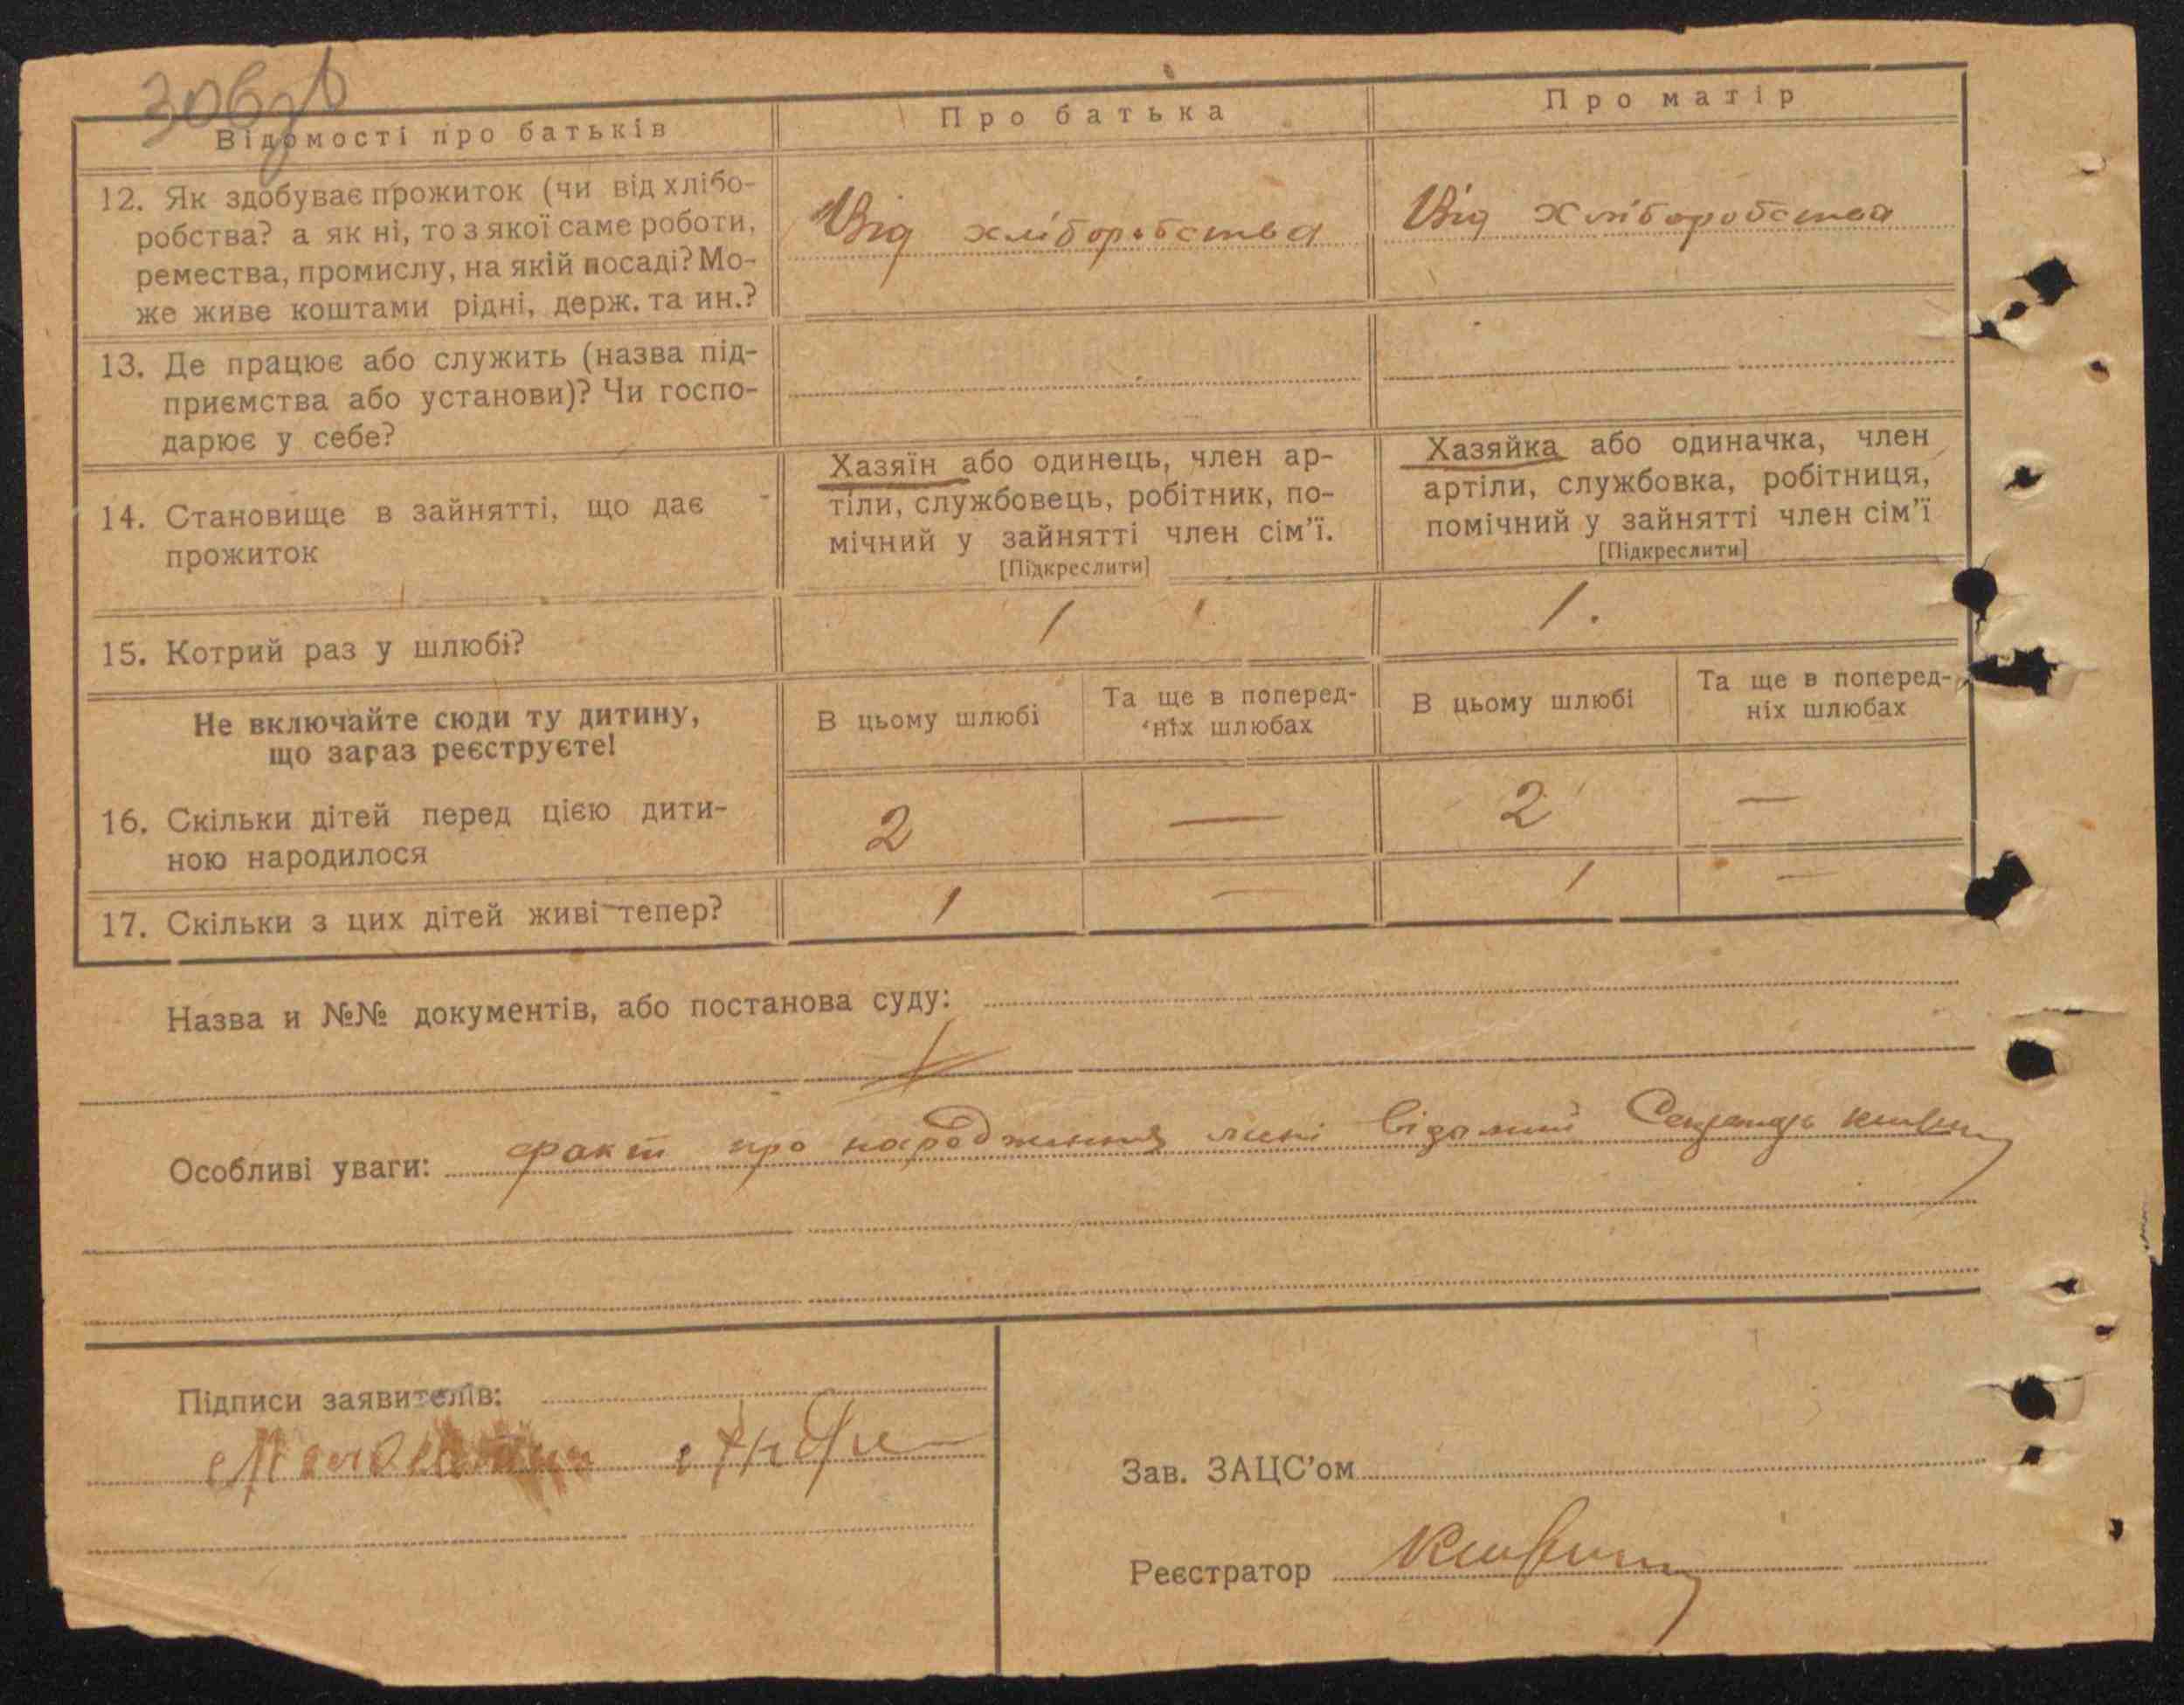 Відомості про батьків
Про батька
Про матір
12. Як здобуває прожиток (чи від хлібо-
робства? а як ні, то з якої саме роботи,
ремества, промислу, на якій посаді? Мо-
же живе коштами рідні, держ. та ин.?
Від хліборобства
Від хліборобства
13. Де працює або служить (назва під-
приємства або установи)? Чи госпо-
дарює у себе?
14. Становище в зайнятті, що дає
прожиток
Хазяїн або одинець, член ар-
тіли, службовець, робітник, по-
мічний у зайнятті член сім’ї.
[Підкреслити]
Хазяйка або одиначка, член
артіли, службовка, робітниця,
помічний у зайнятті член сім’ї
[Підкреслити]
15. Котрий раз у шлюбі?
1
1.
Не включайте сюди ту дитину,
що зараз реєструєте!
В цьому шлюбі
Та ще в поперед-
ніх шлюбах
В цьому шлюбі
Та ще в поперед-
ніх шлюбах
16. Скільки дітей перед цією дити-
ною народилося
2
—
2
—
17. Скільки з цих дітей живі тепер?
1
—
1
—
Назва и №№ документів, або постанова суду:
Особливі уваги: факт про народження мені відомий Секретарь
Підписи заявителів:
Зав. ЗАЦС’ом
Реєстратор